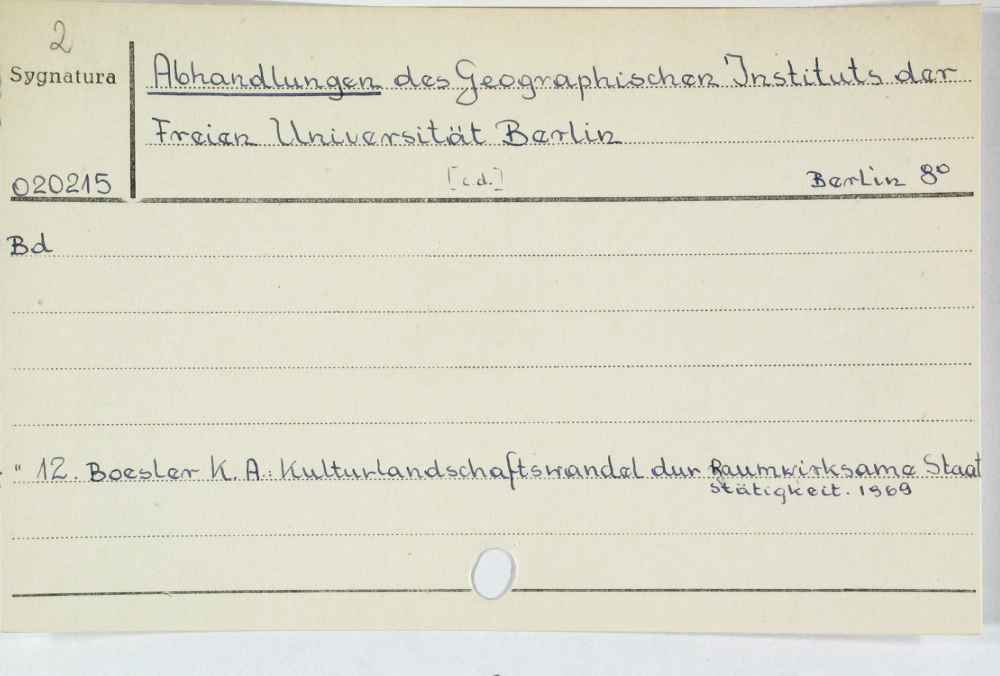 2
Sygnatura
Abhandlungen des Geographischen Instituts der
Freien Universität Berlin
020215
[c.d.]
Berlin 8º
Bd
" 12. Boesler K. A.: Kulturlandschaftswandel dur Raumwirksame Staat
stätigkeit. 1969